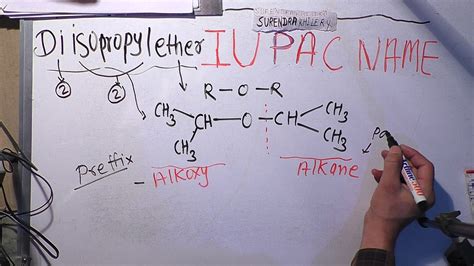 SURENDRA KHILERY
Diisopropylether IUPAC NAME
② ②
R-O-R
CH3 CH3
CH-O-CH
CH3 CH3
Preffix
- Alkoxy Alkane